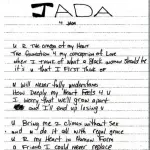 JADA
4 JADA
U R THE OMEGA OF MY HEART
THE FOUNDATION 4 MY CONCEPTION OF LOVE
WHEN I THINK OF WHAT A BLACK WOMAN SHOULD BE
IT'S U THAT I FIRST THINK OF
U WILL NEVER FULLY UNDERSTAND
HOW DEEPLY MY HEART FEELS 4 U
I WORRY THAT WE'LL GROW APART
AND I'LL END UP LOSING U
U BRING ME 2 CLIMAX WITHOUT SEX
AND U DO IT ALL WITH REGAL GRACE
U R MY HEART IN HUMAN FORM
A FRIEND I COULD NEVER REPLACE